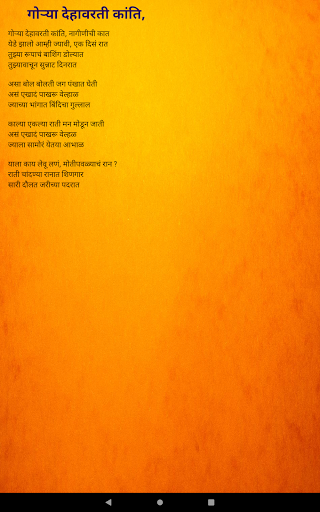 गोऱ्या देहावरती कांति,
गोऱ्या देहावरती कांति, नागीणीची कात
येडे झालो आम्ही ज्यावी, एक दिसं रात
तुझ्या रूपाचं बाशिंग डोल्यात
तुझ्यावाचून सुन्नाट दिनरात
असा बोल बोलती जग पंखात घेती
असं एखादं पाखरू वेल्हाळ
ज्याच्या भांगात बिंदिचा गुल्लाल
काल्या एकल्या राती मन मोडून जाती
असं एखादं पाखरू वेल्हाळ
ज्याला सामोरं येतया आभाळ
याला काय लेवू लणं, मोतीपवळ्याचं रान ?
राती चांदण्या रानात शिणगार
सारी दौलत जरीच्या पदरात